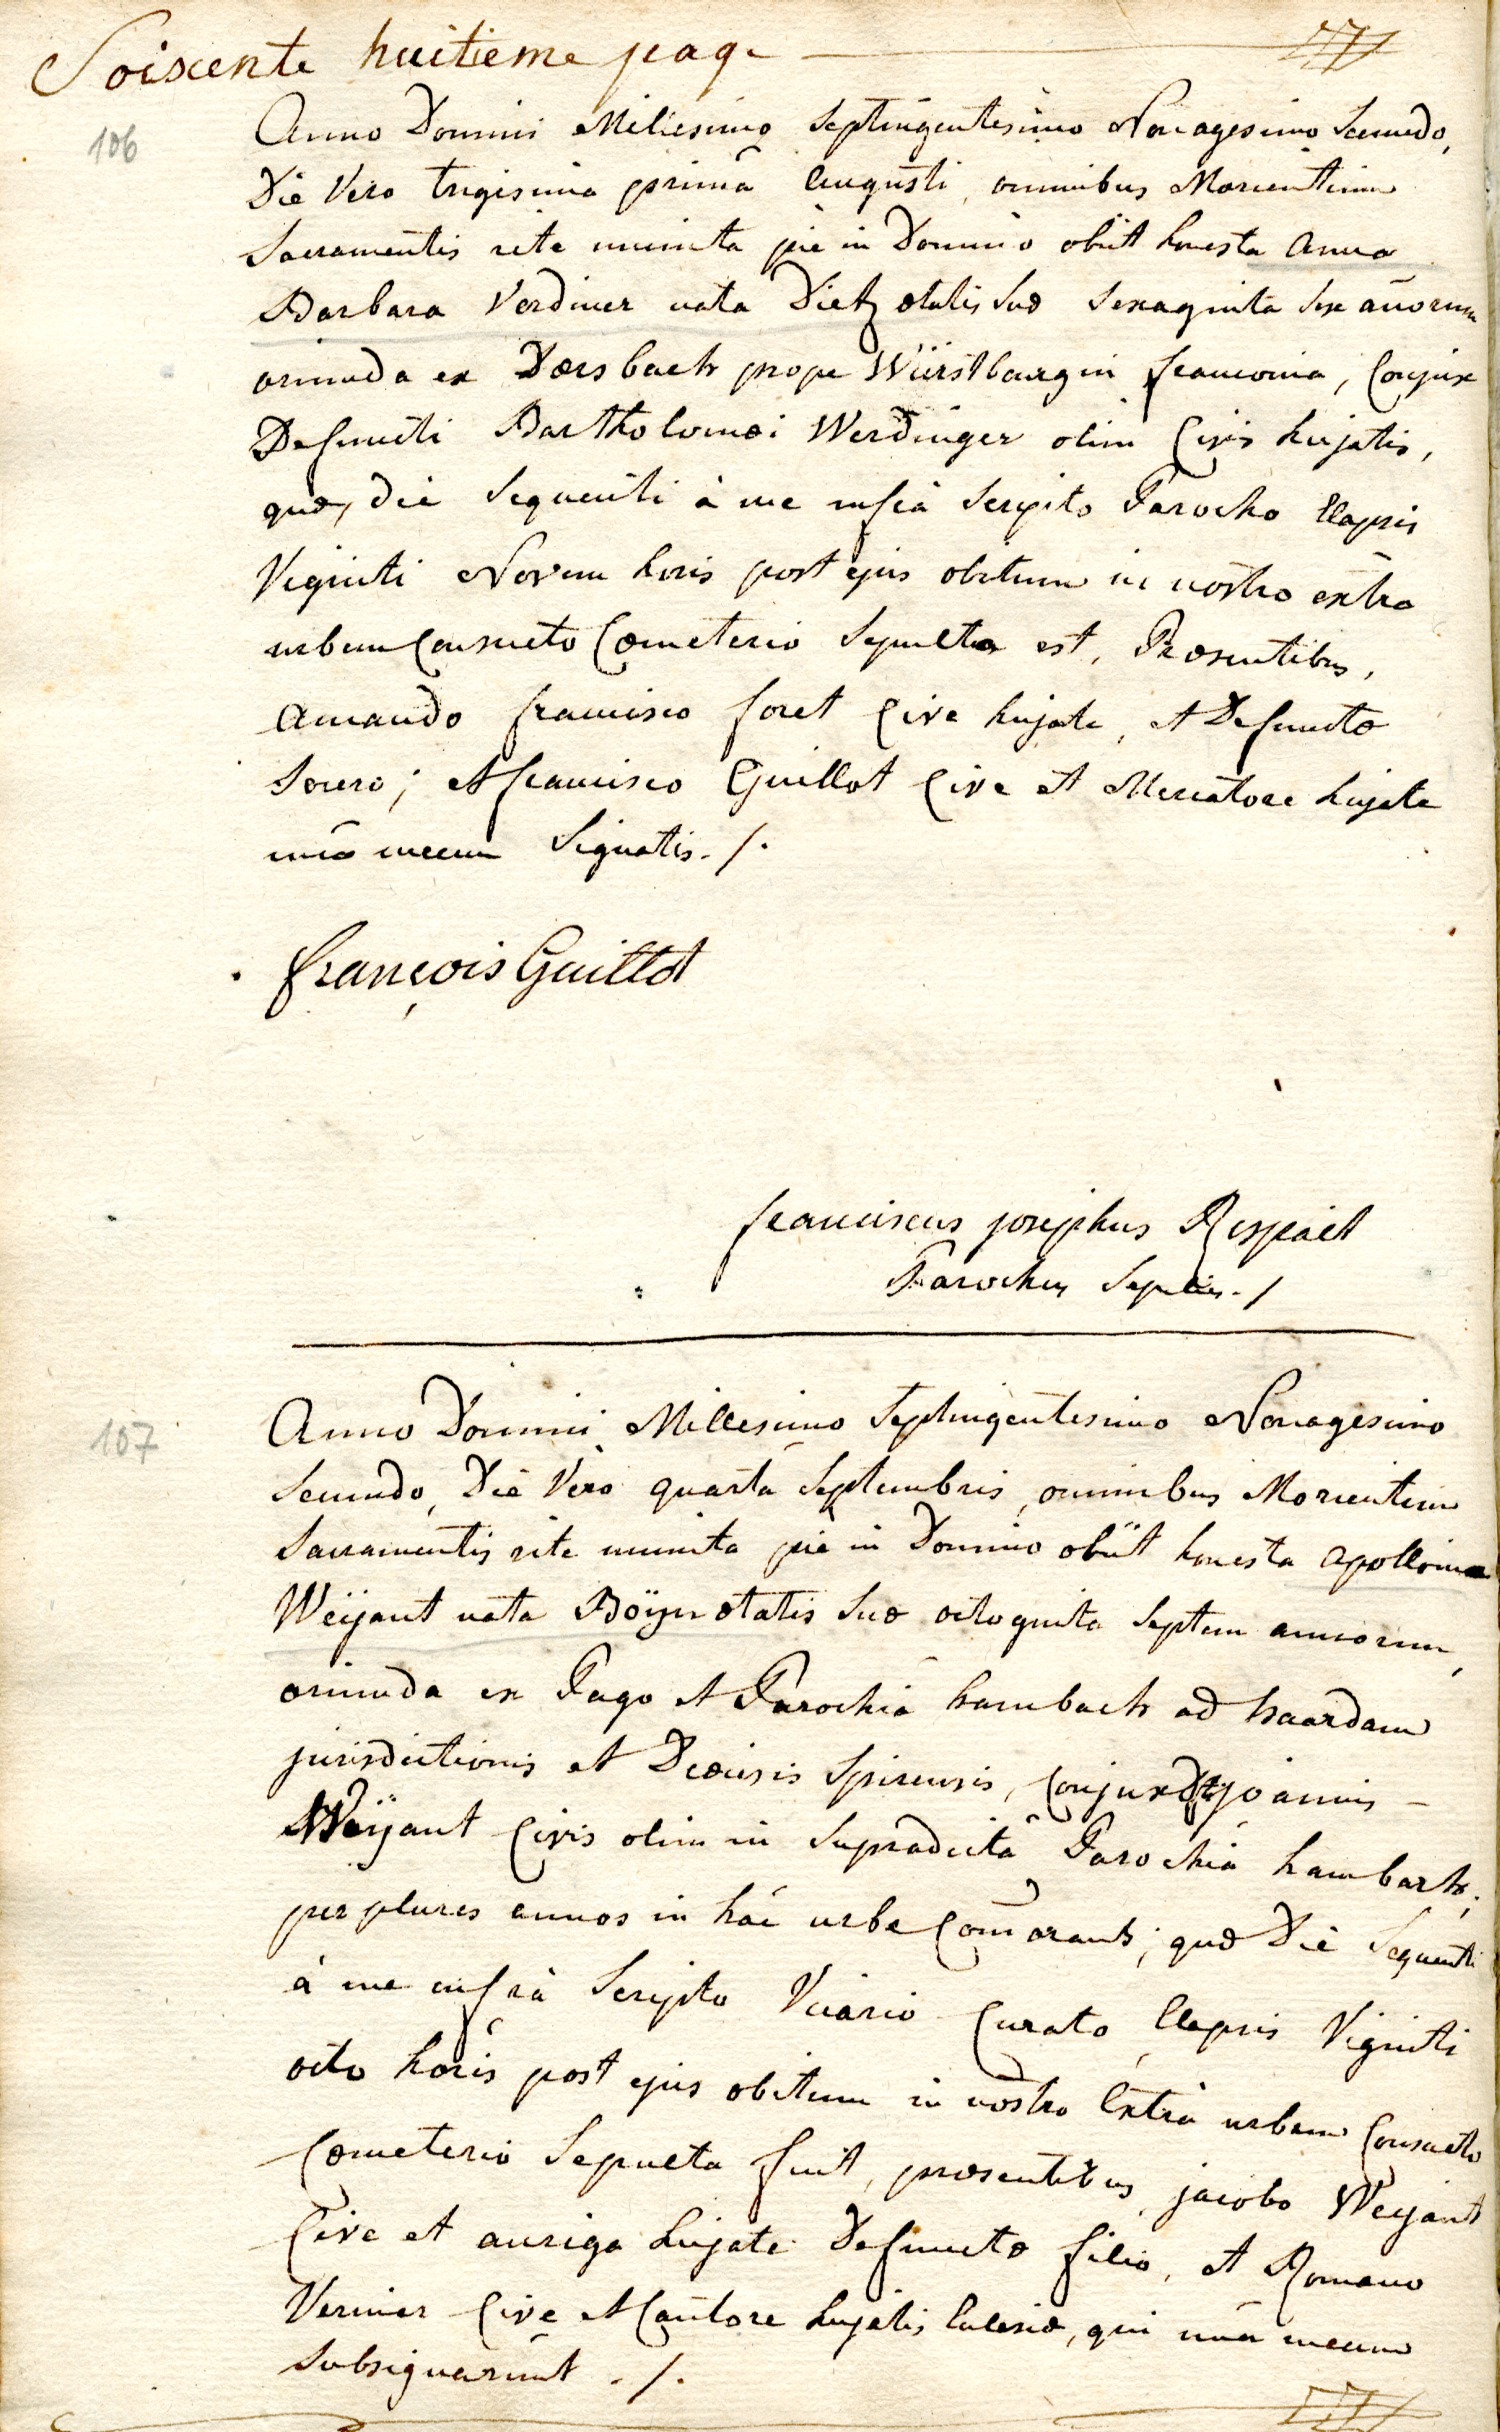 Soixente huitieme page
106
Anno Domini Millesimo Septingentesimo Nonagesimo Secundo,
Die Vero trigesima primâ augusti, omnibus Morientium
Sacramentis rite munita piè in Domino obiit honesta Anna
Barbara Verdiner nata Dietz ætatis suæ Sexaginta Sex añorum
oriunda ex Dærsbach prope Würstbourg in franconia, Conjux
Defuncti Bartholomæi Werdinger olim Civis hujatis,
quæ, die Sequenti à me infrà Scripto Parocho Elapsis
Viginti Novem horis post ejus obitum in nostro extra
urbem Consueto Cœmeterio Sepulta est, Præsentibus,
Amando francisco foret Cive hujate, et Defunctæ
Socero; et francisco Guillot Cive et Mercatore hujate
unà mecum Signatis ./.
françois Guillot
franciscus josephus Respiel
Parochus
107
Anno Domini Millesimo Septingentesimo Nonagesimo
Secundo, Die Vero quartâ Septembris, omnibus Morientium
Sacramentis rite munita piè in Domino obiit honesta apollonia
Weijant nata Böijer ætatis suæ octoginta Septem annorum,
oriunda ex Pago et Parochiâ hambach ad haardam
jurisdictionis et Diœcesis Spirensis, Conjux Joannis –
Weijant Civis olim in Supradictâ Parochiâ hambach,
per plures annos in hâc urbe Com̃orans; quæ Die Sequenti
à me infrà Scripto Vicario Curato, Elapsis Viginti
octo horis post ejus obitum in nostro Extrà urbem Consueto
Cœmeterio Sepulta fuit, præsentibus jacobo Weijant
Cive et auriga hujate Defunctæ filio, et Romano
Verinier Cive et Cantore hujatis Ecclesiæ, qui unà mecum
Subsignarunt ./.